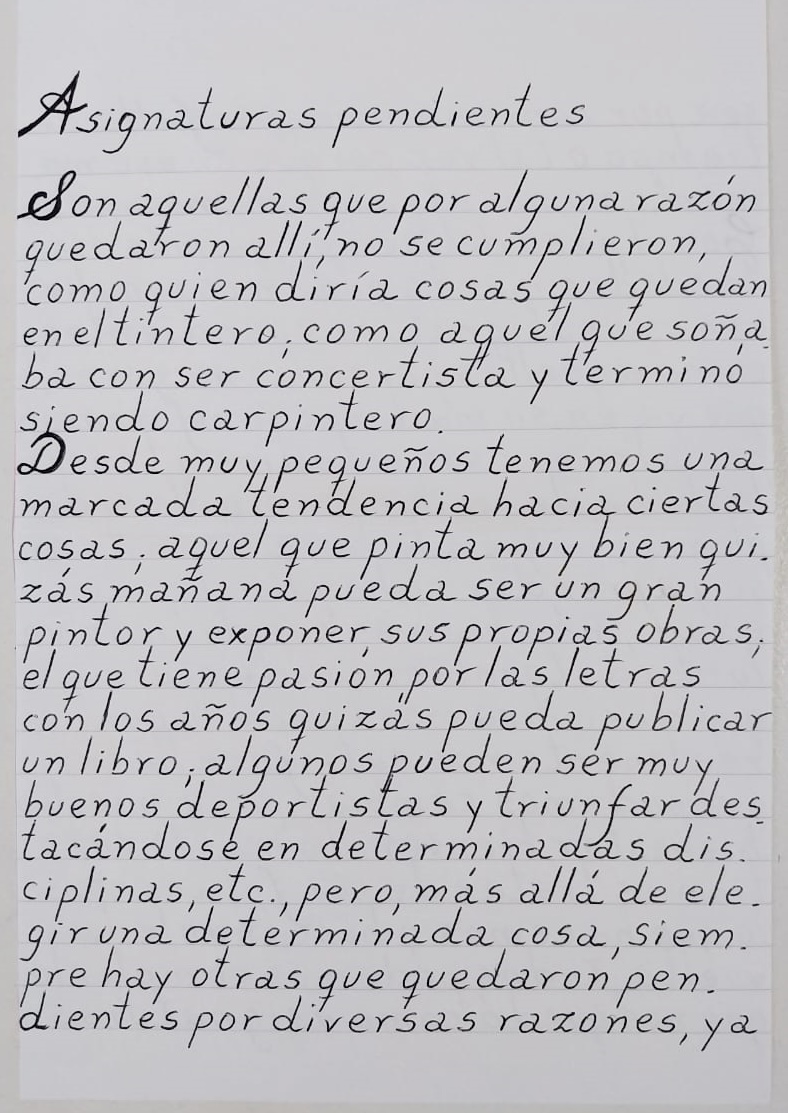 Asignaturas pendientes
Son aquellas que por alguna razón
quedaron allí, no se cumplieron,
como quien diría cosas que quedan
en el tintero; como aquel que soña-
ba con ser concertista y terminó
siendo carpintero.
Desde muy pequeños tenemos una
marcada tendencia hacia ciertas
cosas; aquel que pinta muy bien qui-
zás mañana pueda ser un gran
pintor y exponer sus propias obras;
el que tiene pasión por las letras
con los años quizás pueda publicar
un libro; algunos pueden ser muy
buenos deportistas y triunfar des-
tacándose en determinadas dis-
ciplinas, etc., pero, más allá de ele-
gir una determinada cosa, siem-
pre hay otras que quedaron pen-
dientes por diversas razones, ya